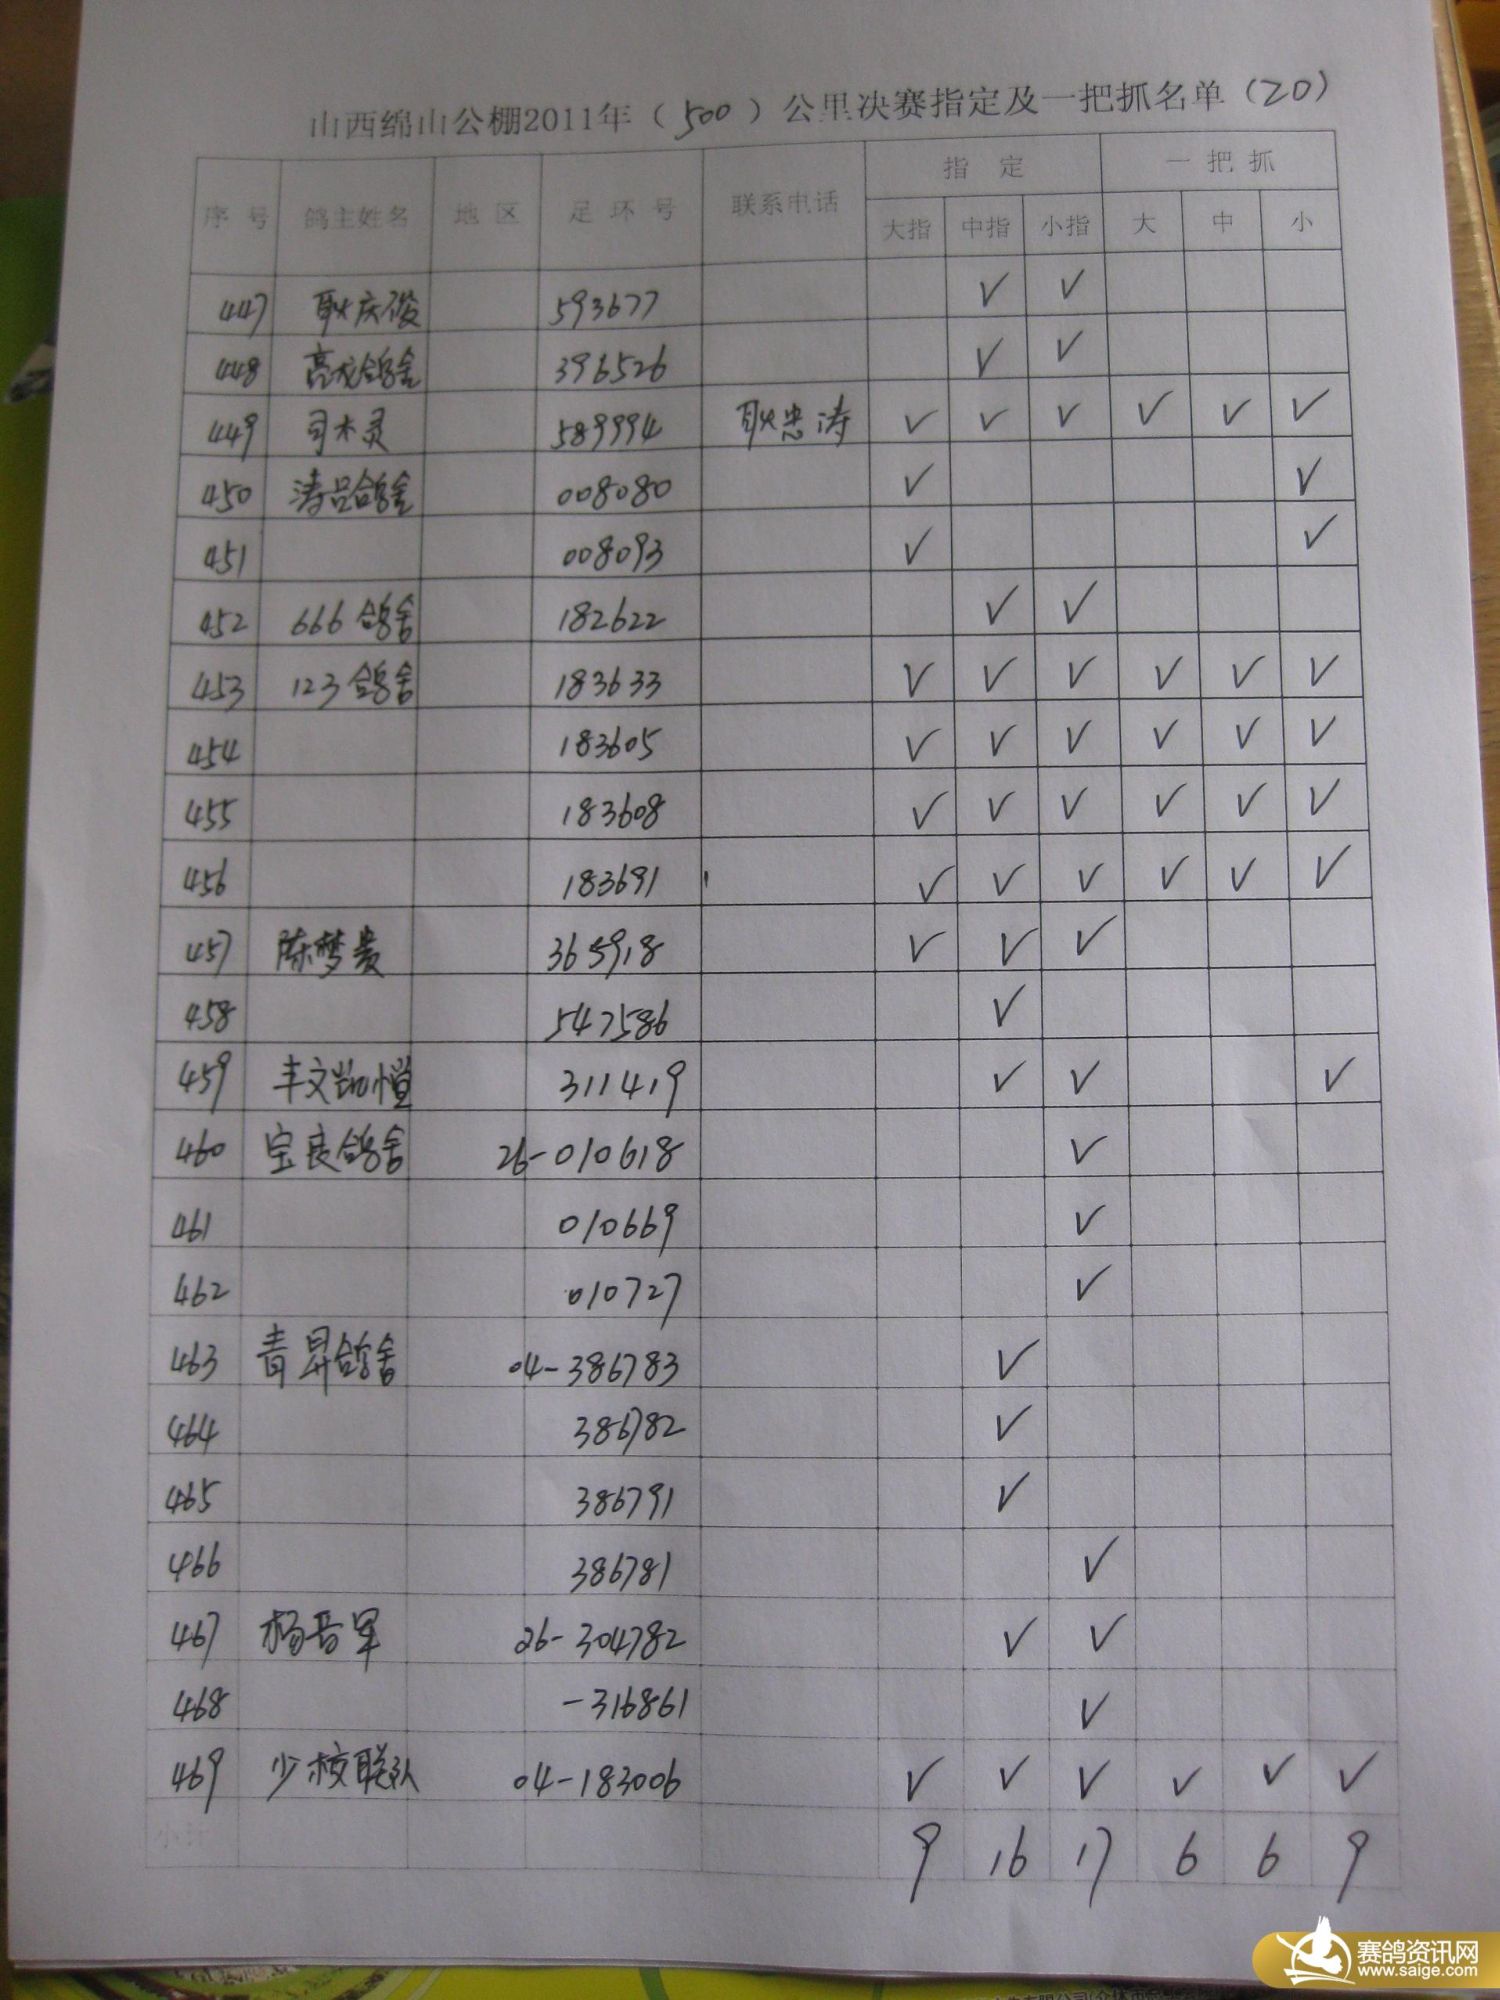 山西绵山公棚2011年（500）公里决赛指定及一把抓名单（20）
序号 鸽主姓名 地区 足环号 联系电话 指定 一把抓
大指 中指 小指 大 中 小
447 耿庆俊 593677 ✓ ✓
448 亮龙鸽舍 396526 ✓ ✓
449 司木灵 589994 耿忠涛 ✓ ✓ ✓ ✓ ✓ ✓
450 涛吕鸽舍 008080 ✓ ✓
451 008093 ✓ ✓
452 666鸽舍 182622 ✓ ✓
453 123鸽舍 183633 ✓ ✓ ✓ ✓ ✓ ✓
454 183605 ✓ ✓ ✓ ✓ ✓ ✓
455 183608 ✓ ✓ ✓ ✓ ✓ ✓
456 183691 ✓ ✓ ✓ ✓ ✓ ✓
457 陈梦贵 365918 ✓ ✓ ✓
458 547586 ✓
459 丰文凯恒 311419 ✓ ✓ ✓
460 宝良鸽舍 26-010618 ✓
461 010669 ✓
462 010727 ✓
463 青昇鸽舍 04-386783 ✓
464 386782 ✓
465 386791 ✓
466 386781 ✓
467 杨晋军 26-304782 ✓ ✓
468 -316861 ✓
469 少校联队 04-183006 ✓ ✓ ✓ ✓ ✓ ✓
小计 9 16 17 6 6 9
赛鸽资讯网
www.saige.com